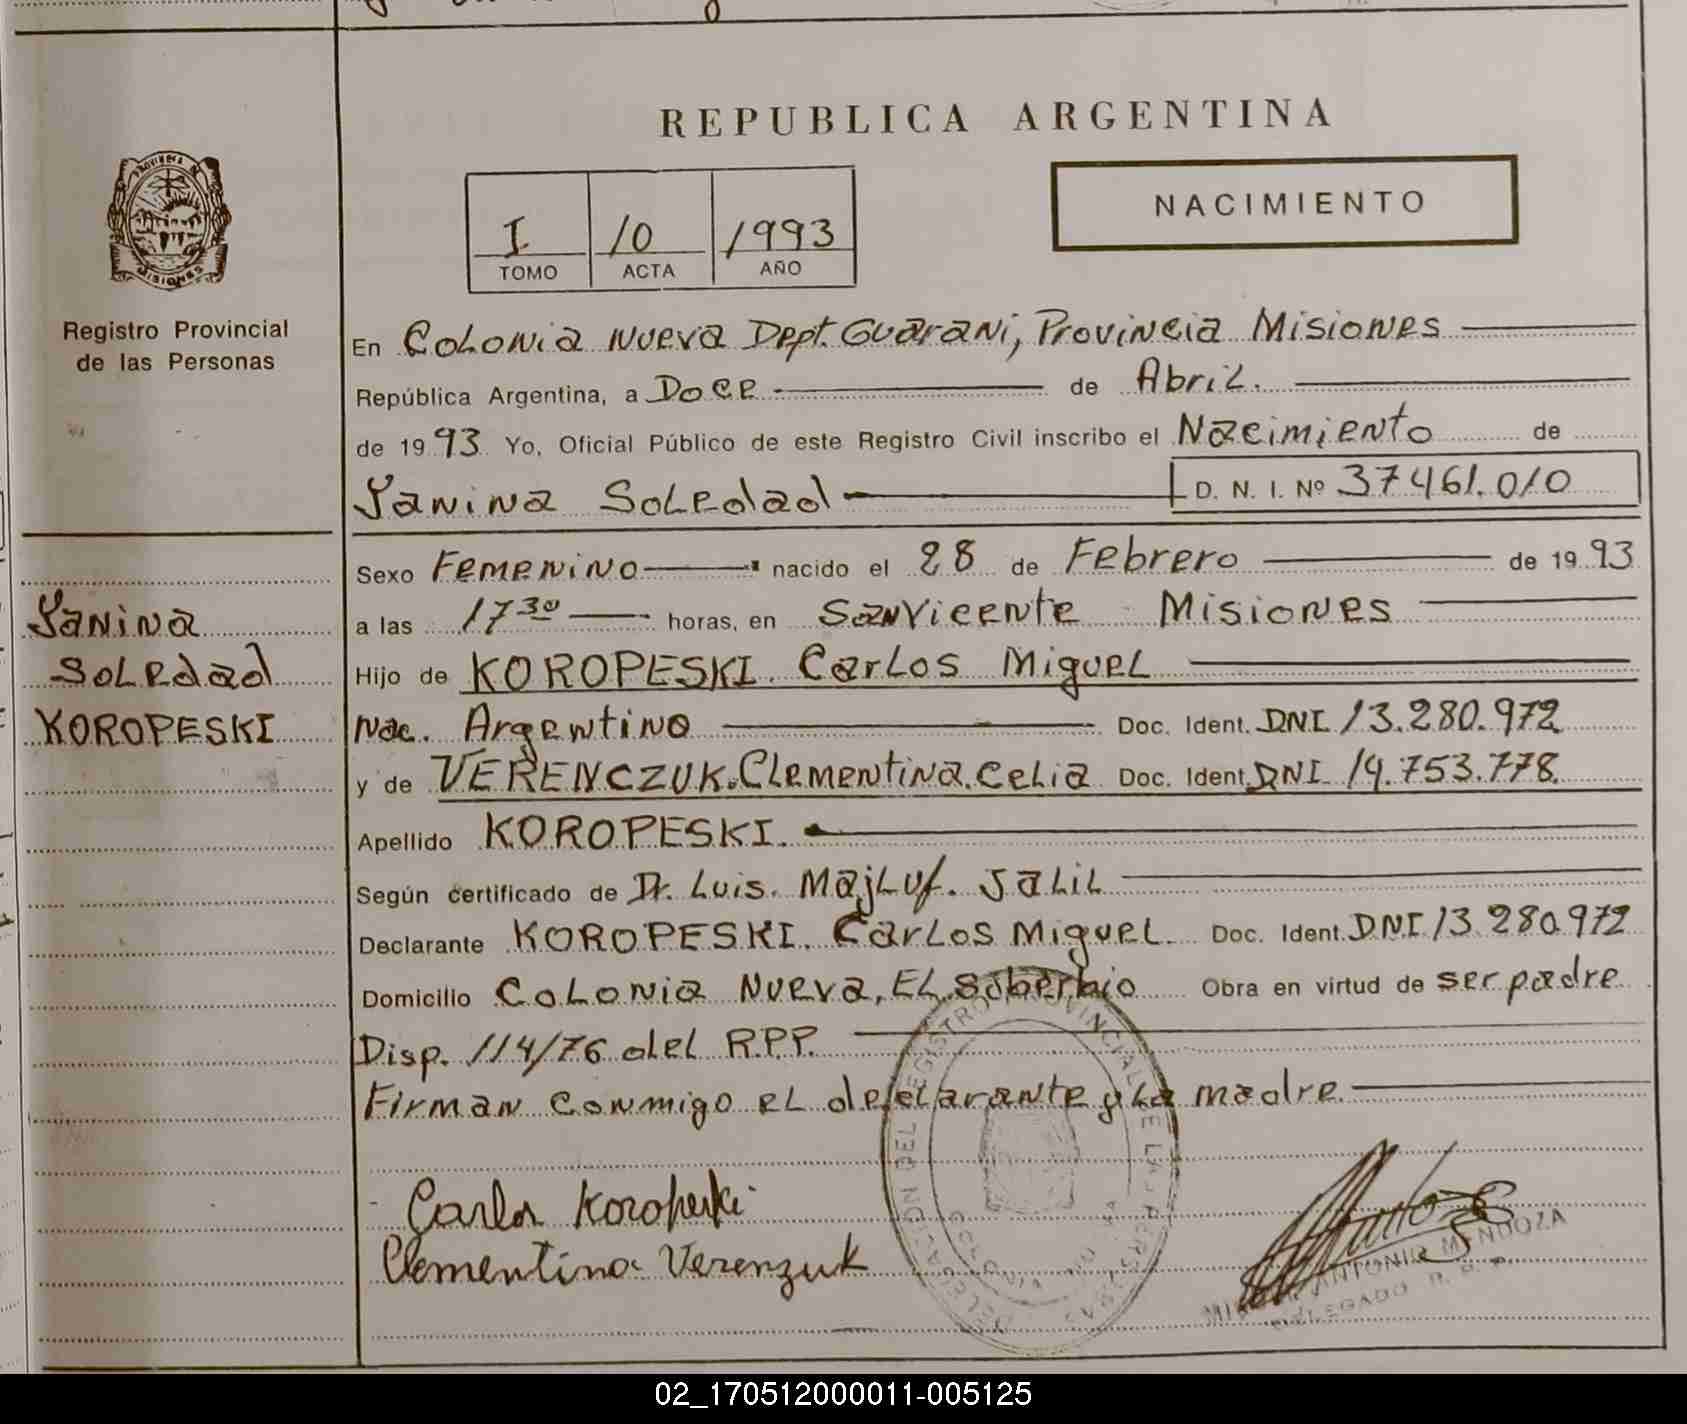 REPUBLICA ARGENTINA
PROVINCIA
MISIONES
Registro Provincial
de las Personas
I 10 1993
TOMO ACTA AÑO
NACIMIENTO
En Colonia Nueva Dept. Guarani, Provincia Misiones
República Argentina, a Doce de Abril.
de 1993 Yo, Oficial Público de este Registro Civil inscribo el Nacimiento de
Yanina Soledad D. N. I. Nº 37461.010
Sexo Femenino nacido el 28 de Febrero de 1993
a las 17 30 horas, en San Vicente Misiones
Hijo de KOROPESKI. Carlos Miguel
Nac. Argentino Doc. Ident. DNI 13.280.972
y de VERENCZUK. Clementina. Celia Doc. Ident. DNI 14.753.778
Apellido KOROPESKI.
Según certificado de Dr. Luis. Majluf. Jalil
Declarante KOROPESKI. Carlos Miguel Doc. Ident. DNI 13.280.972
Domicilio Colonia Nueva, El Soberbio Obra en virtud de ser padre
Disp. 114/76 del R.P.P.
Firman conmigo el declarante y La madre.
Yanina
Soledad
KOROPESKI
Carlos Koropeski
Clementina Verenzuk
DELEGACION DEL REGISTRO PROVINCIAL DE LAS PERSONAS
ANTONIO MENDOZA
DELEGADO R. P. P.
02_170512000011-005125